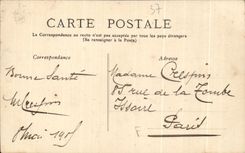 37
CARTE POSTALE
La correspondance au recto n'est pas acceptée par tous les pays étrangers
(Se renseigner à la Poste)
Correspondance
Adresse
Bonne Santé
Mai 1905
Madame Crespin
85 rue de la Tombe
Issoire
Paris